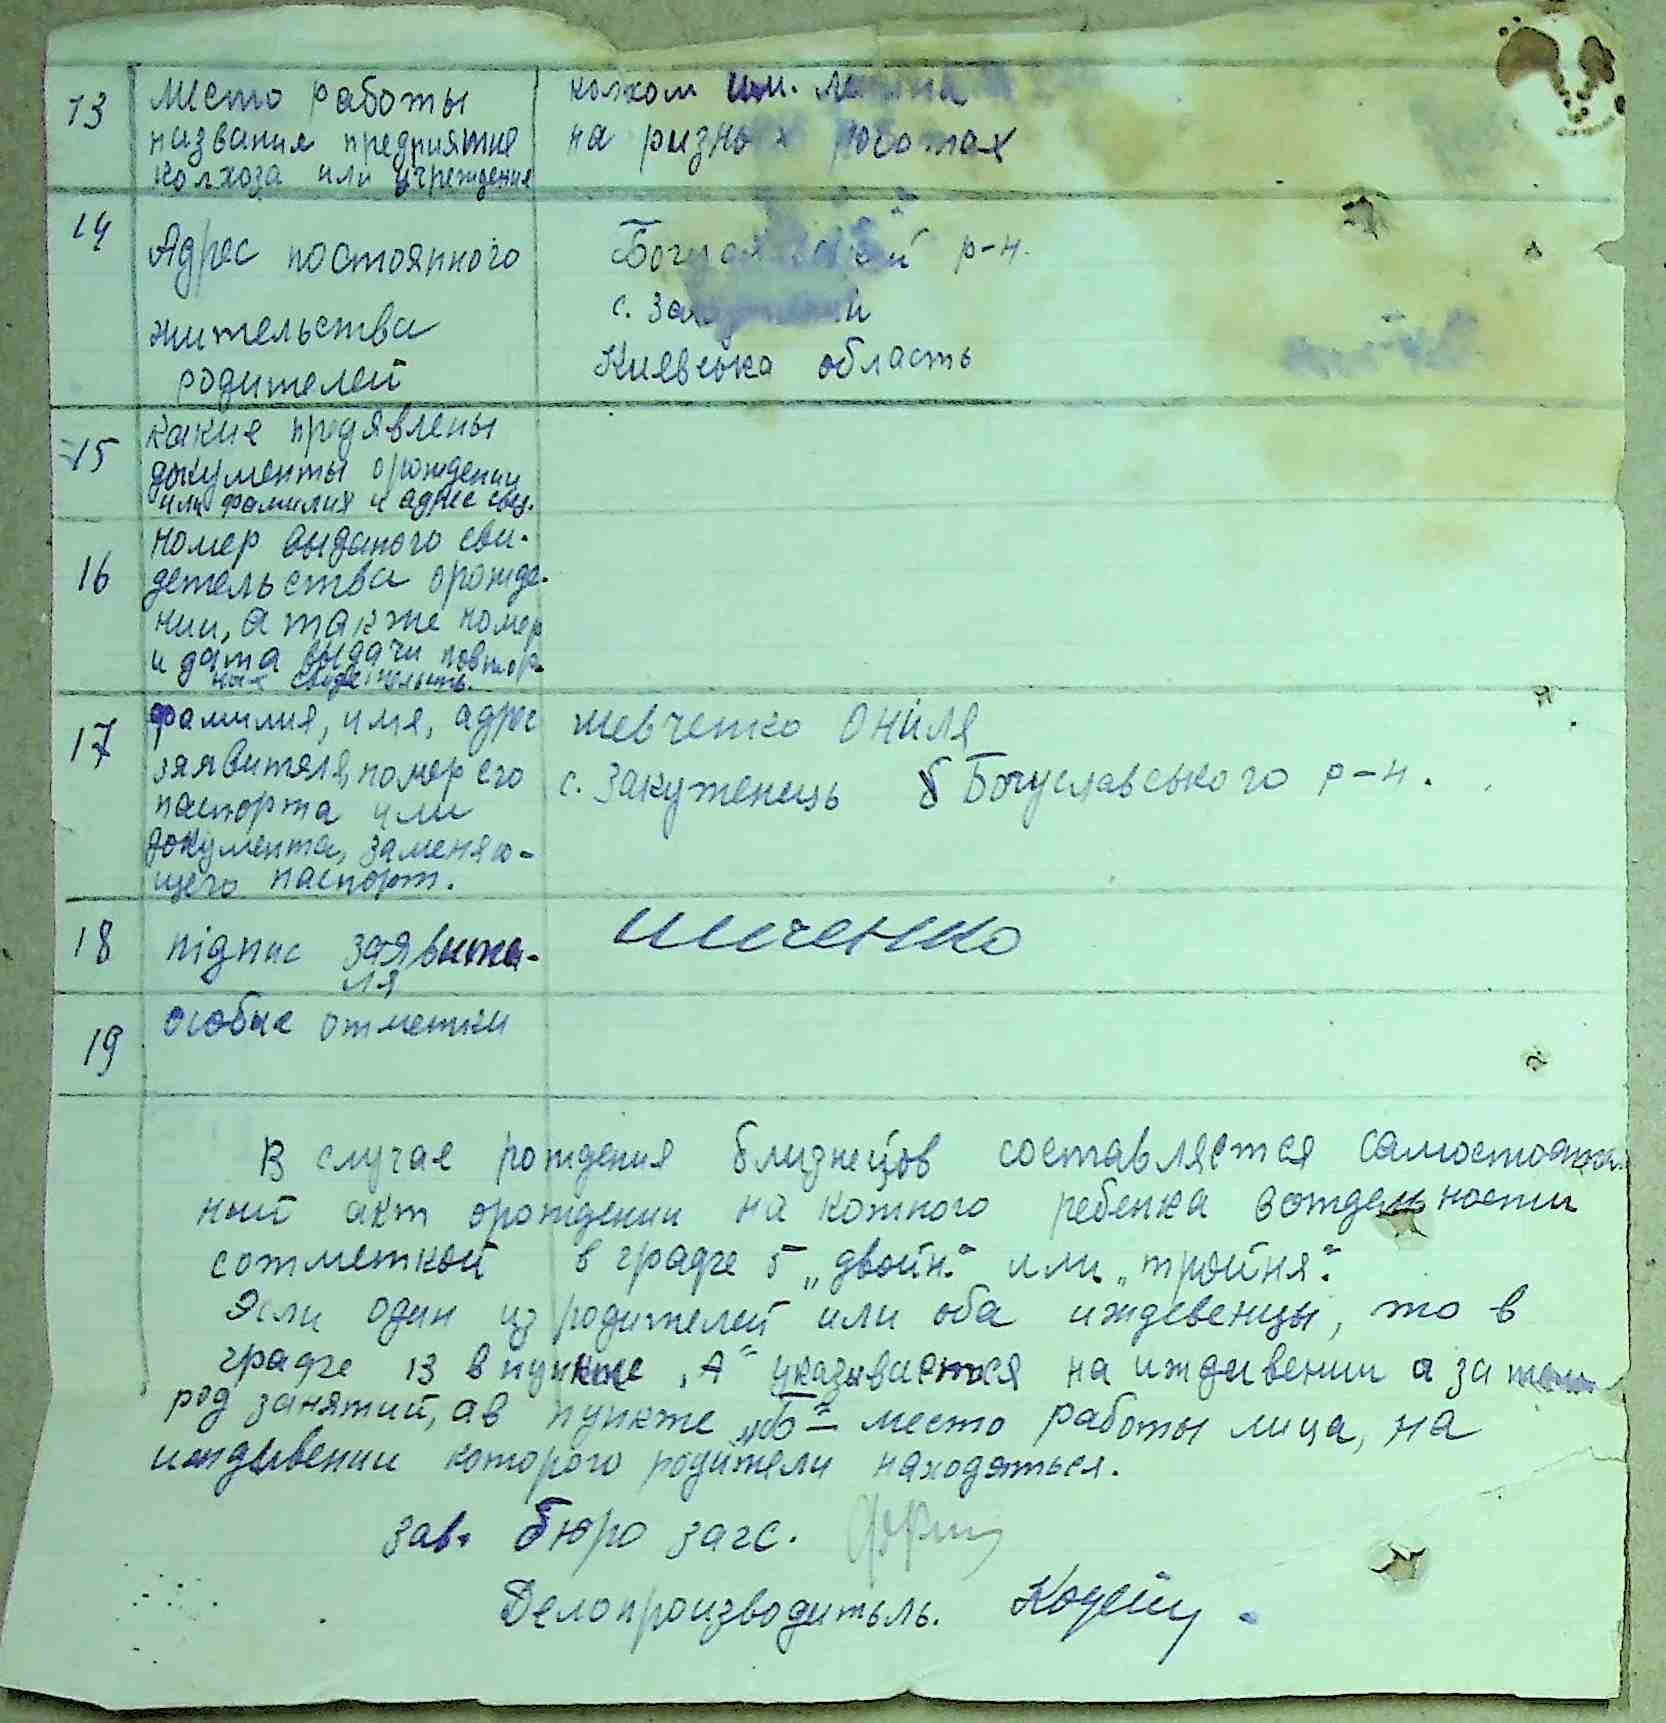 13 место работы
названия предприятие
колхоза или учреждения
колхом им. Леніна
на ризных роботах
14 Адрес постоянного
жительства
родителей
Богуславський р-н.
с. Закутенці
Киевська область
15 какие предявлены
документы орождении
или фамилия и адрес свид.
16 номер выданого сви-
детельства орожде-
нии, а также номер
и дата выдачи повтор-
ных свидетельств.
17 фамилия, имя, адрес
заявителя, номер его
паспорта или
документа, заменяю-
щего паспорт.
шевченко Оніля
с. Закутенець б Богуславського р-н.
18 підпис заявите-
ля
19 особые отметки
В случае рождения близнецов составляется самостоятель
ный акт орождении на кожного ребенка вотдельности
сотметкой в графе 5 „двойн." или „тройня".
Эсли один из родителей или оба иждевенцы, то в
графе 13 в пункте „А" указывается на иждивении а затем
род занятий, а в пункте „Б" – место работы лица, на
иждывении которого родители находяться.
зав. бюро загс.
Делопроизводитьль.